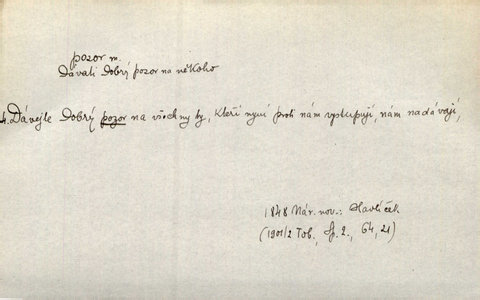 pozor m.
Dávati Dobrý pozor na někoho
Dávejte Dobrý pozor na všechny ty, kteří nyní proti nám vystupují, nám nadávají,
1848 Nár. nov.: Havlíček
(1901/2 Tob., Sp. 2., 64, 21)